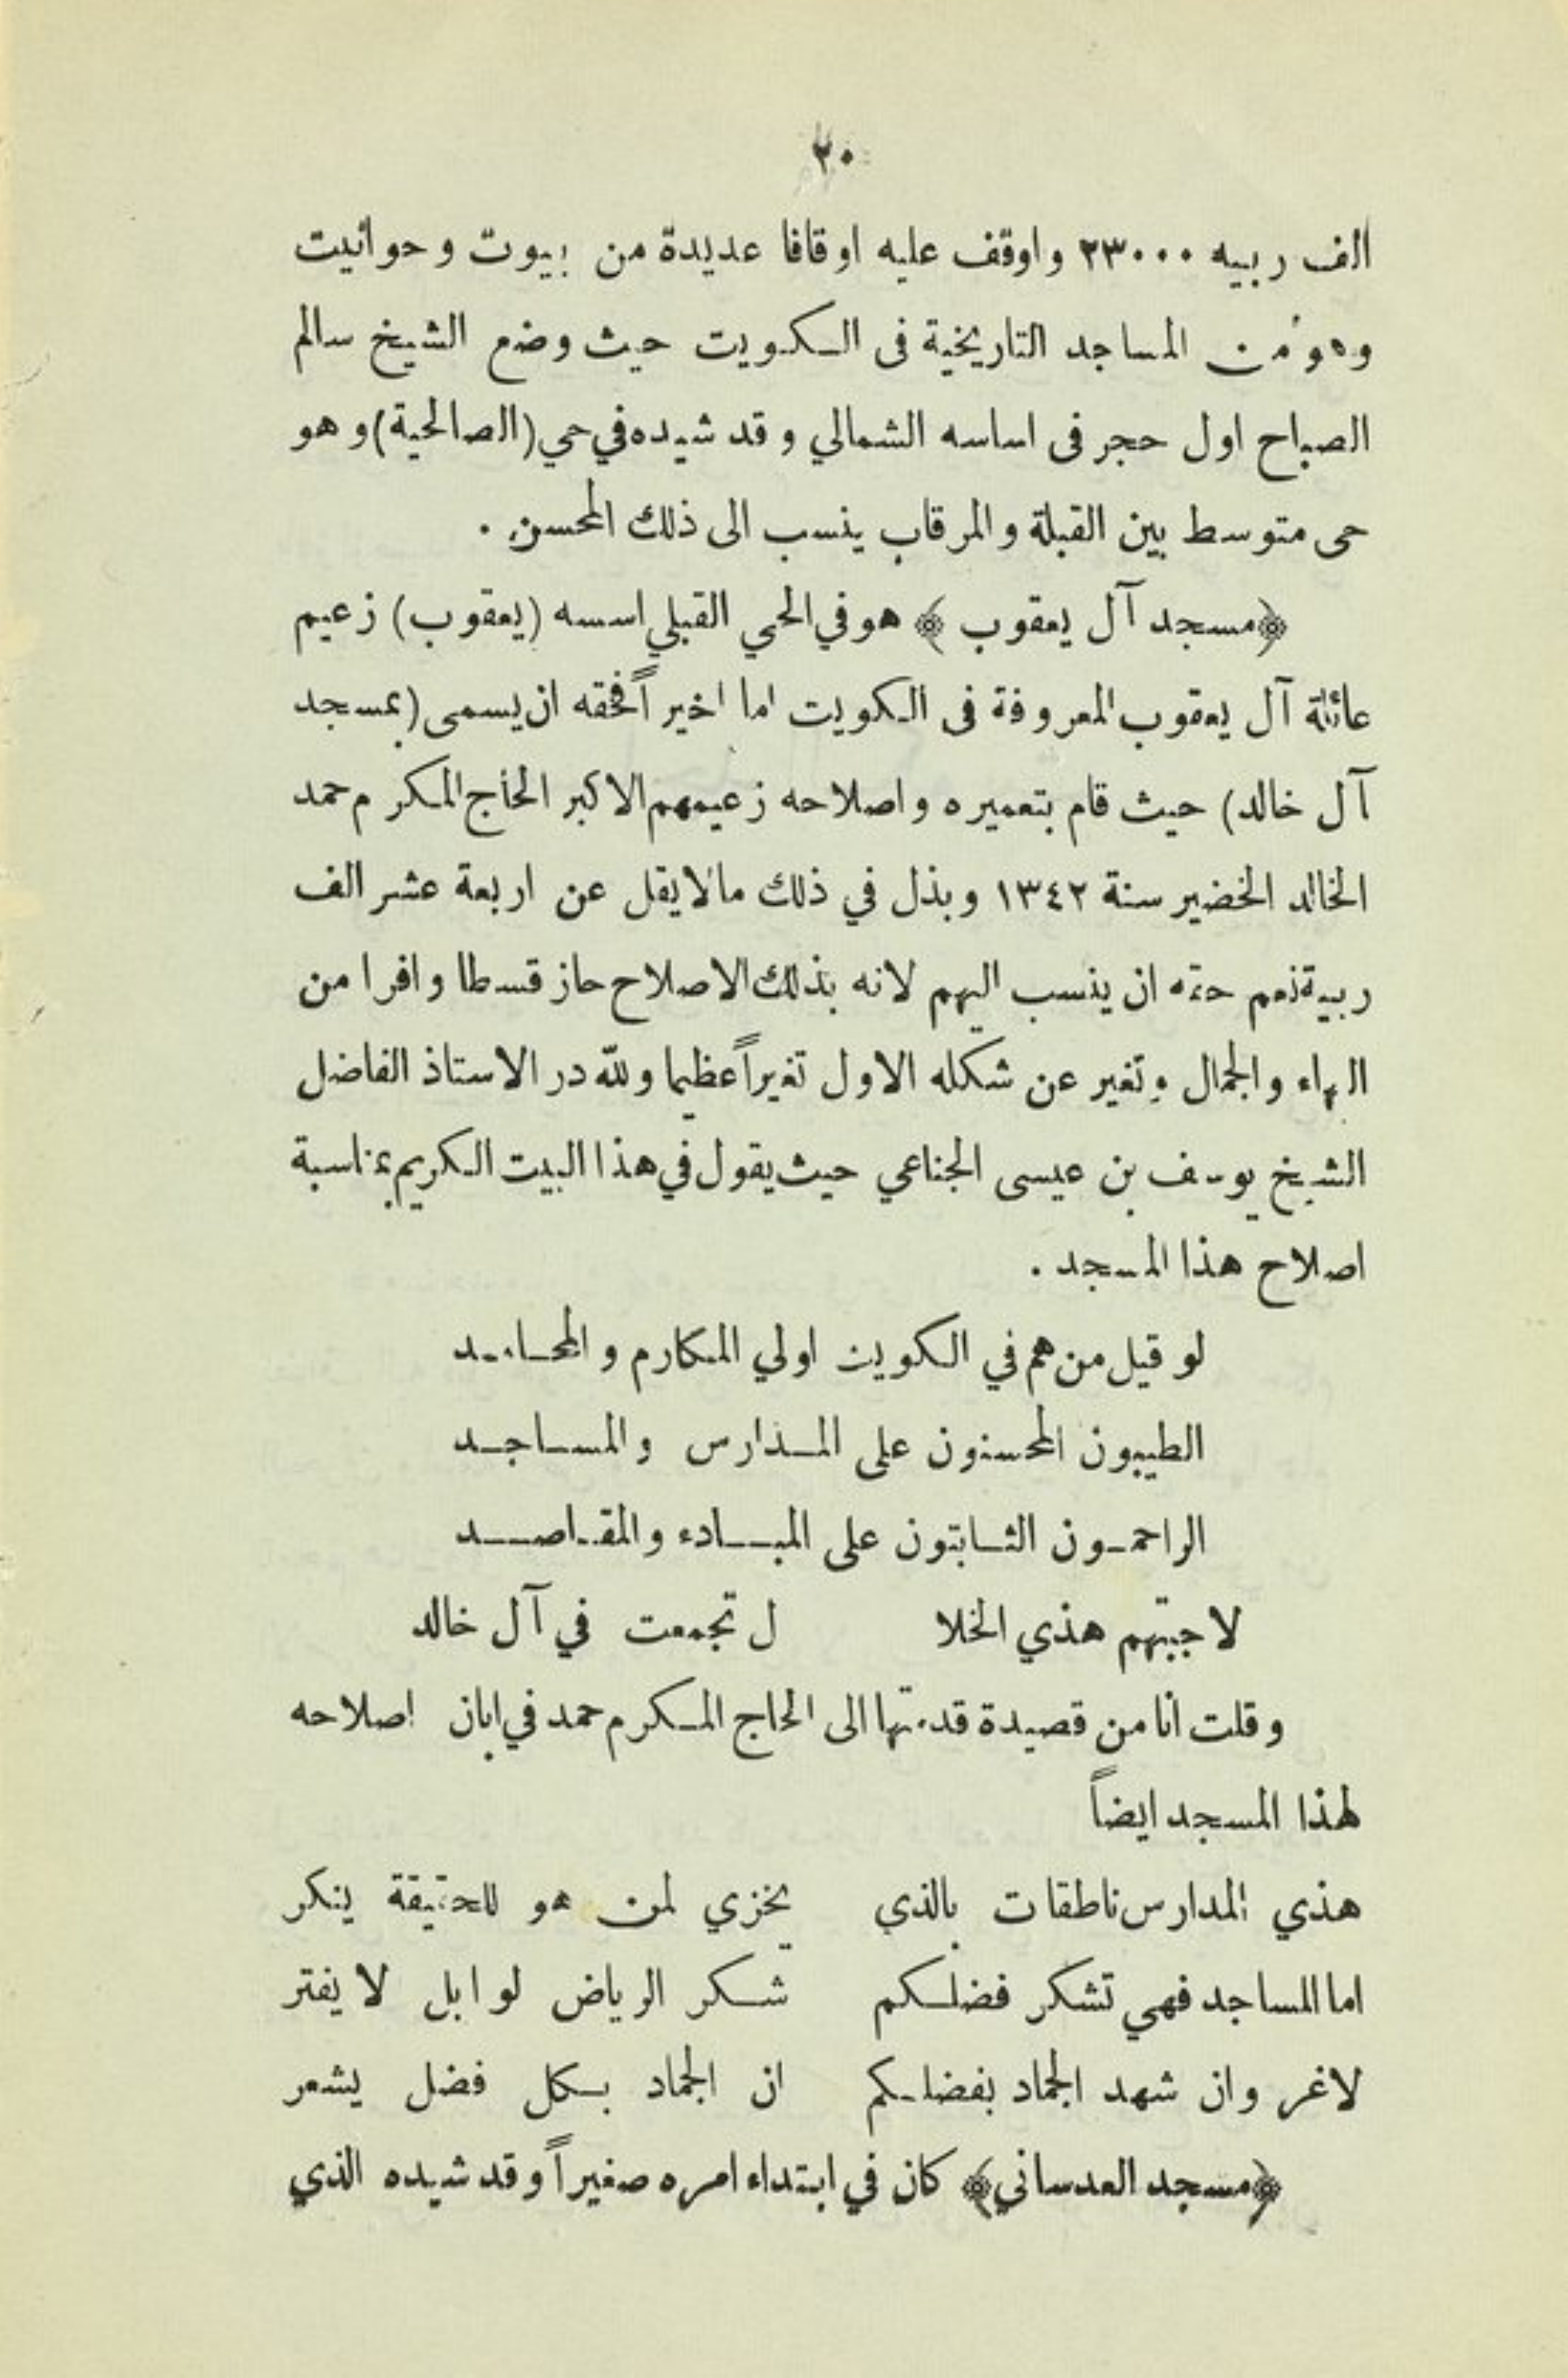 ٢٠
الف ربيه ٢٣٠٠٠ واوقف عليه اوقافا عديدة من بيوت وحوانيت
وهو من المساجد التاريخية فى الكويت حيث وضع الشيخ سالم
الصباح اول حجر فى اساسه الشمالي وقد شيده في حي (الصالحية) وهو
حى متوسط بين القبلة والمرقاب ينسب الى ذلك المحسن .
﴿مسجد آل يعقوب﴾ هو في الحي القبلي اسسه (يعقوب) زعيم
عائلة آل يعقوب المعروفة فى الكويت اما اخيراً فحقه ان يسمى (بمسجد
آل خالد) حيث قام بتعميره واصلاحه زعيمهم الاكبر الحاج المكرم حمد
الخالد الخضير سنة ١٣٤٢ وبذل في ذلك مالا يقل عن اربعة عشر الف
ربية نعم حقه ان ينسب اليهم لانه بذلك الاصلاح حاز قسطا وافرا من
البهاء والجمال وتغير عن شكله الاول تغيراً عظيما ولله در الاستاذ الفاضل
الشيخ يوسف بن عيسى الجناعي حيث يقول في هذا البيت الكريم بمناسبة
اصلاح هذا المسجد .
لو قيل من هم في الكويت اولي المكارم والمحامد
الطيبون المحسنون على المدارس والمساجد
الراحمون الثابتون على المبادء والمقاصد
لاجبتهم هذي الخلا ل تجمعت في آل خالد
وقلت انا من قصيدة قدمتها الى الحاج المكرم حمد في ابان اصلاحه
لهذا المسجد ايضاً
هذي المدارس ناطقات بالذي يخزي لمن هو للحقيقة ينكر
اما المساجد فهي تشكر فضلكم شكر الرياض لوابل لا يفتر
لاغر وان شهد الجماد بفضلكم ان الجماد بكل فضل يشعر
﴿مسجد العدساني﴾ كان في ابتداء امره صغيراً وقد شيده الذي